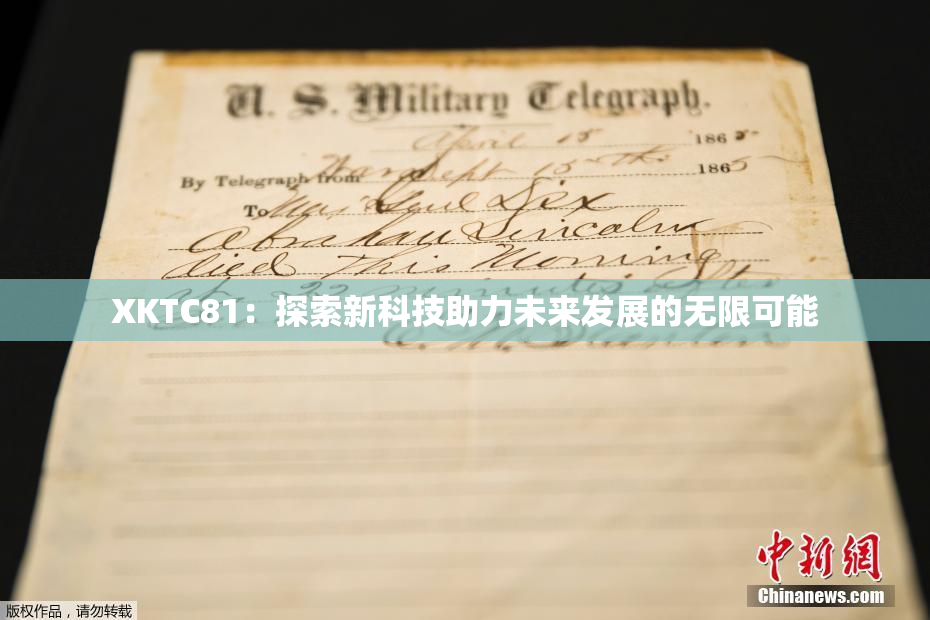 U. S. Military Telegraph.
April 15 1865
By Telegraph from War Dept 15th 1865
To Maj Genl Dix
Abraham Lincoln
died This Morning
at 22 minutes after
XKTC81：探索新科技助力未来发展的无限可能
E. M. Stanton
中新网
Chinanews.com
版权作品，请勿转载